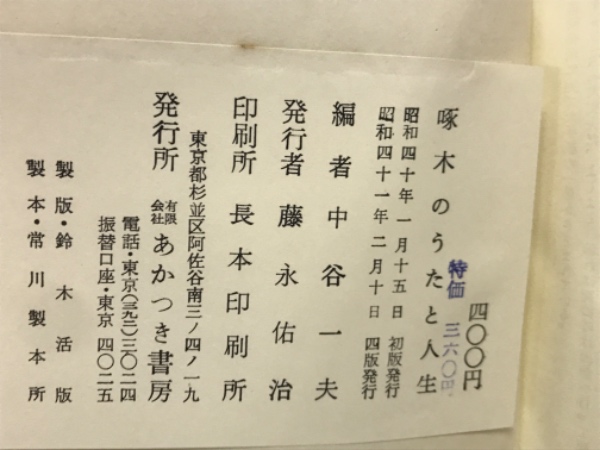 四〇〇円
特価 三六〇円
啄木のうたと人生
昭和四十年一月十五日 初版発行
昭和四十一年二月十日 四版発行
編者 中谷一夫
発行者 藤永佑治
印刷所 長本印刷所
東京都杉並区阿佐谷南三ノ四ノ一九
発行所 有限会社 あかつき書房
電話・東京(三九三)三〇二四
振替口座・東京 四〇二五
製版・鈴木活版
製本・常川製本所